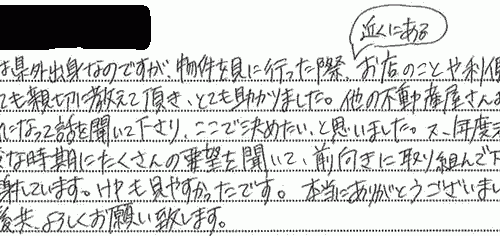 近くにある
は県外出身なのですが、物件を見に行った際、お店のことや利便
ても親切に教えて頂き、とても助かりました。他の不動産屋さんよ
になって話を聞いて下さり、ここで決めたい、と思いました。又、年度末
な時期にたくさんの要望を聞いて、前向きに取り組んで下
謝しています。HPも見やすかったです。本当にありがとうございまし
後共、よろしくお願い致します。